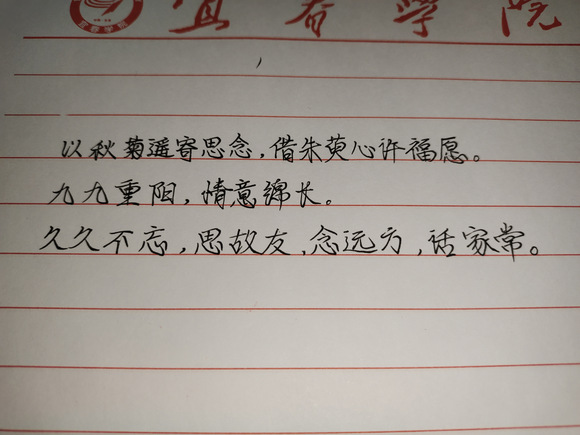 宜春学院
以秋菊遥寄思念，借朱萸心许福愿。
九九重阳，情意绵长。
久久不忘，思故友，念远方，话家常。